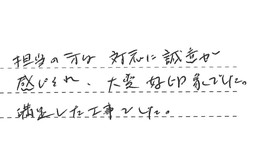 担当の方は 対応に誠意が
感じられ、大変好印象でした。
満足した工事でした。